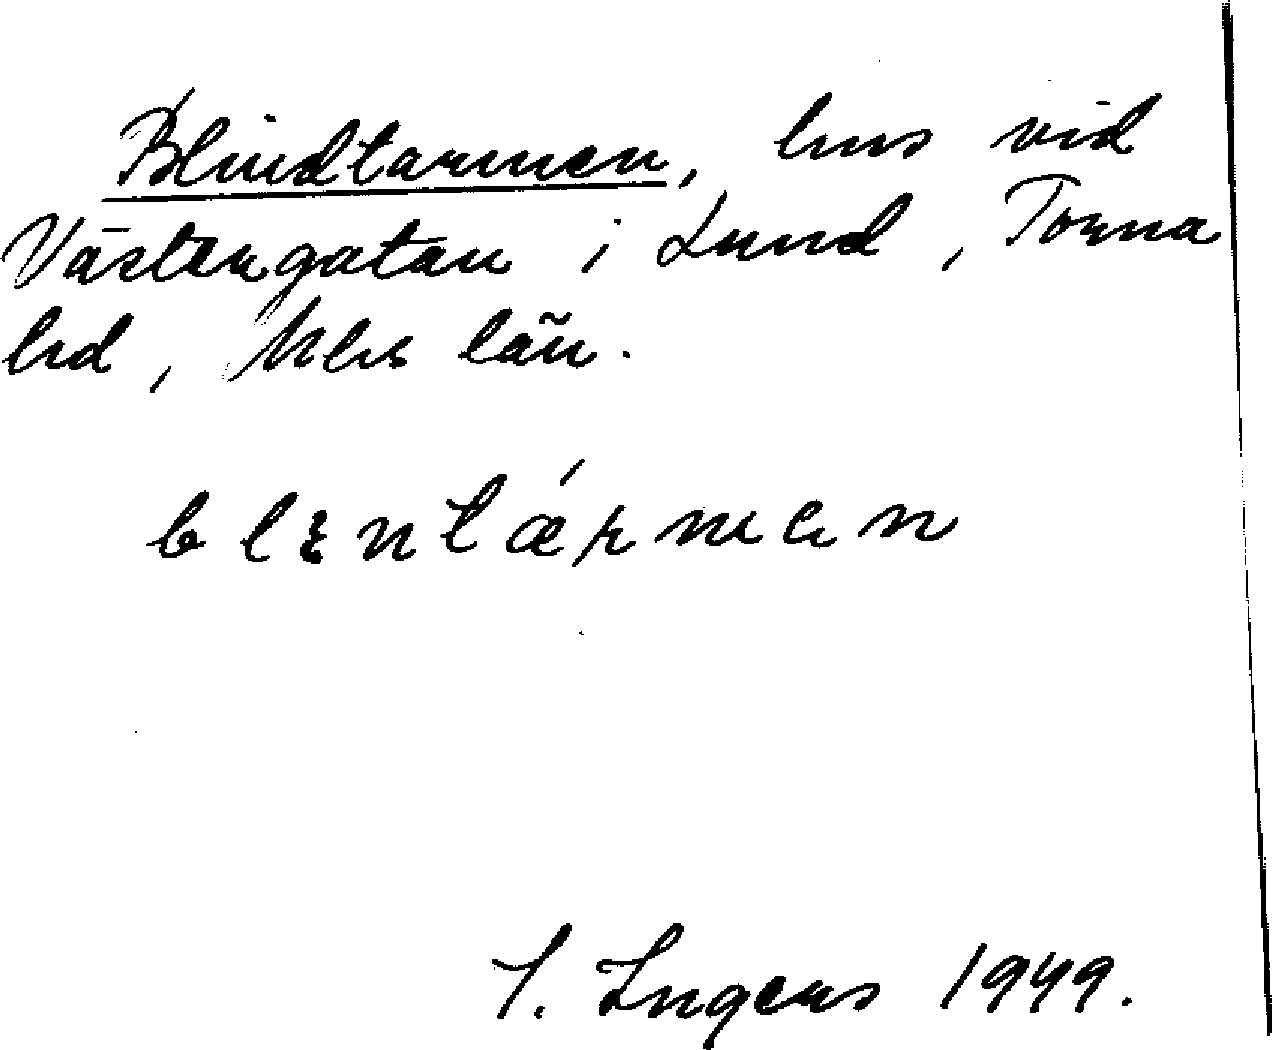 Blindtarmen, hus vid
Västergatan i Lund, Torna
hd, Mhs län.
blentármen
I. Ingers 1949.